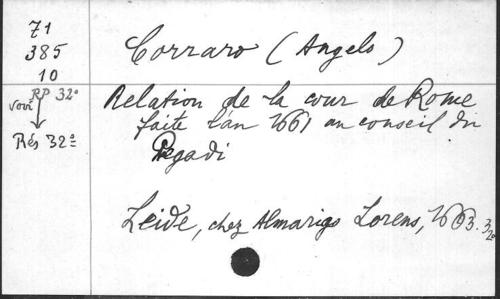 71
385
10
RP 32°
voir
Rés 32°
Corraro (Angelo)
Relation de la cour de Rome
faite l'an 1661 au conseil du
Pregadi
Leide, chez Almarigo Lorens, 1663. 32°